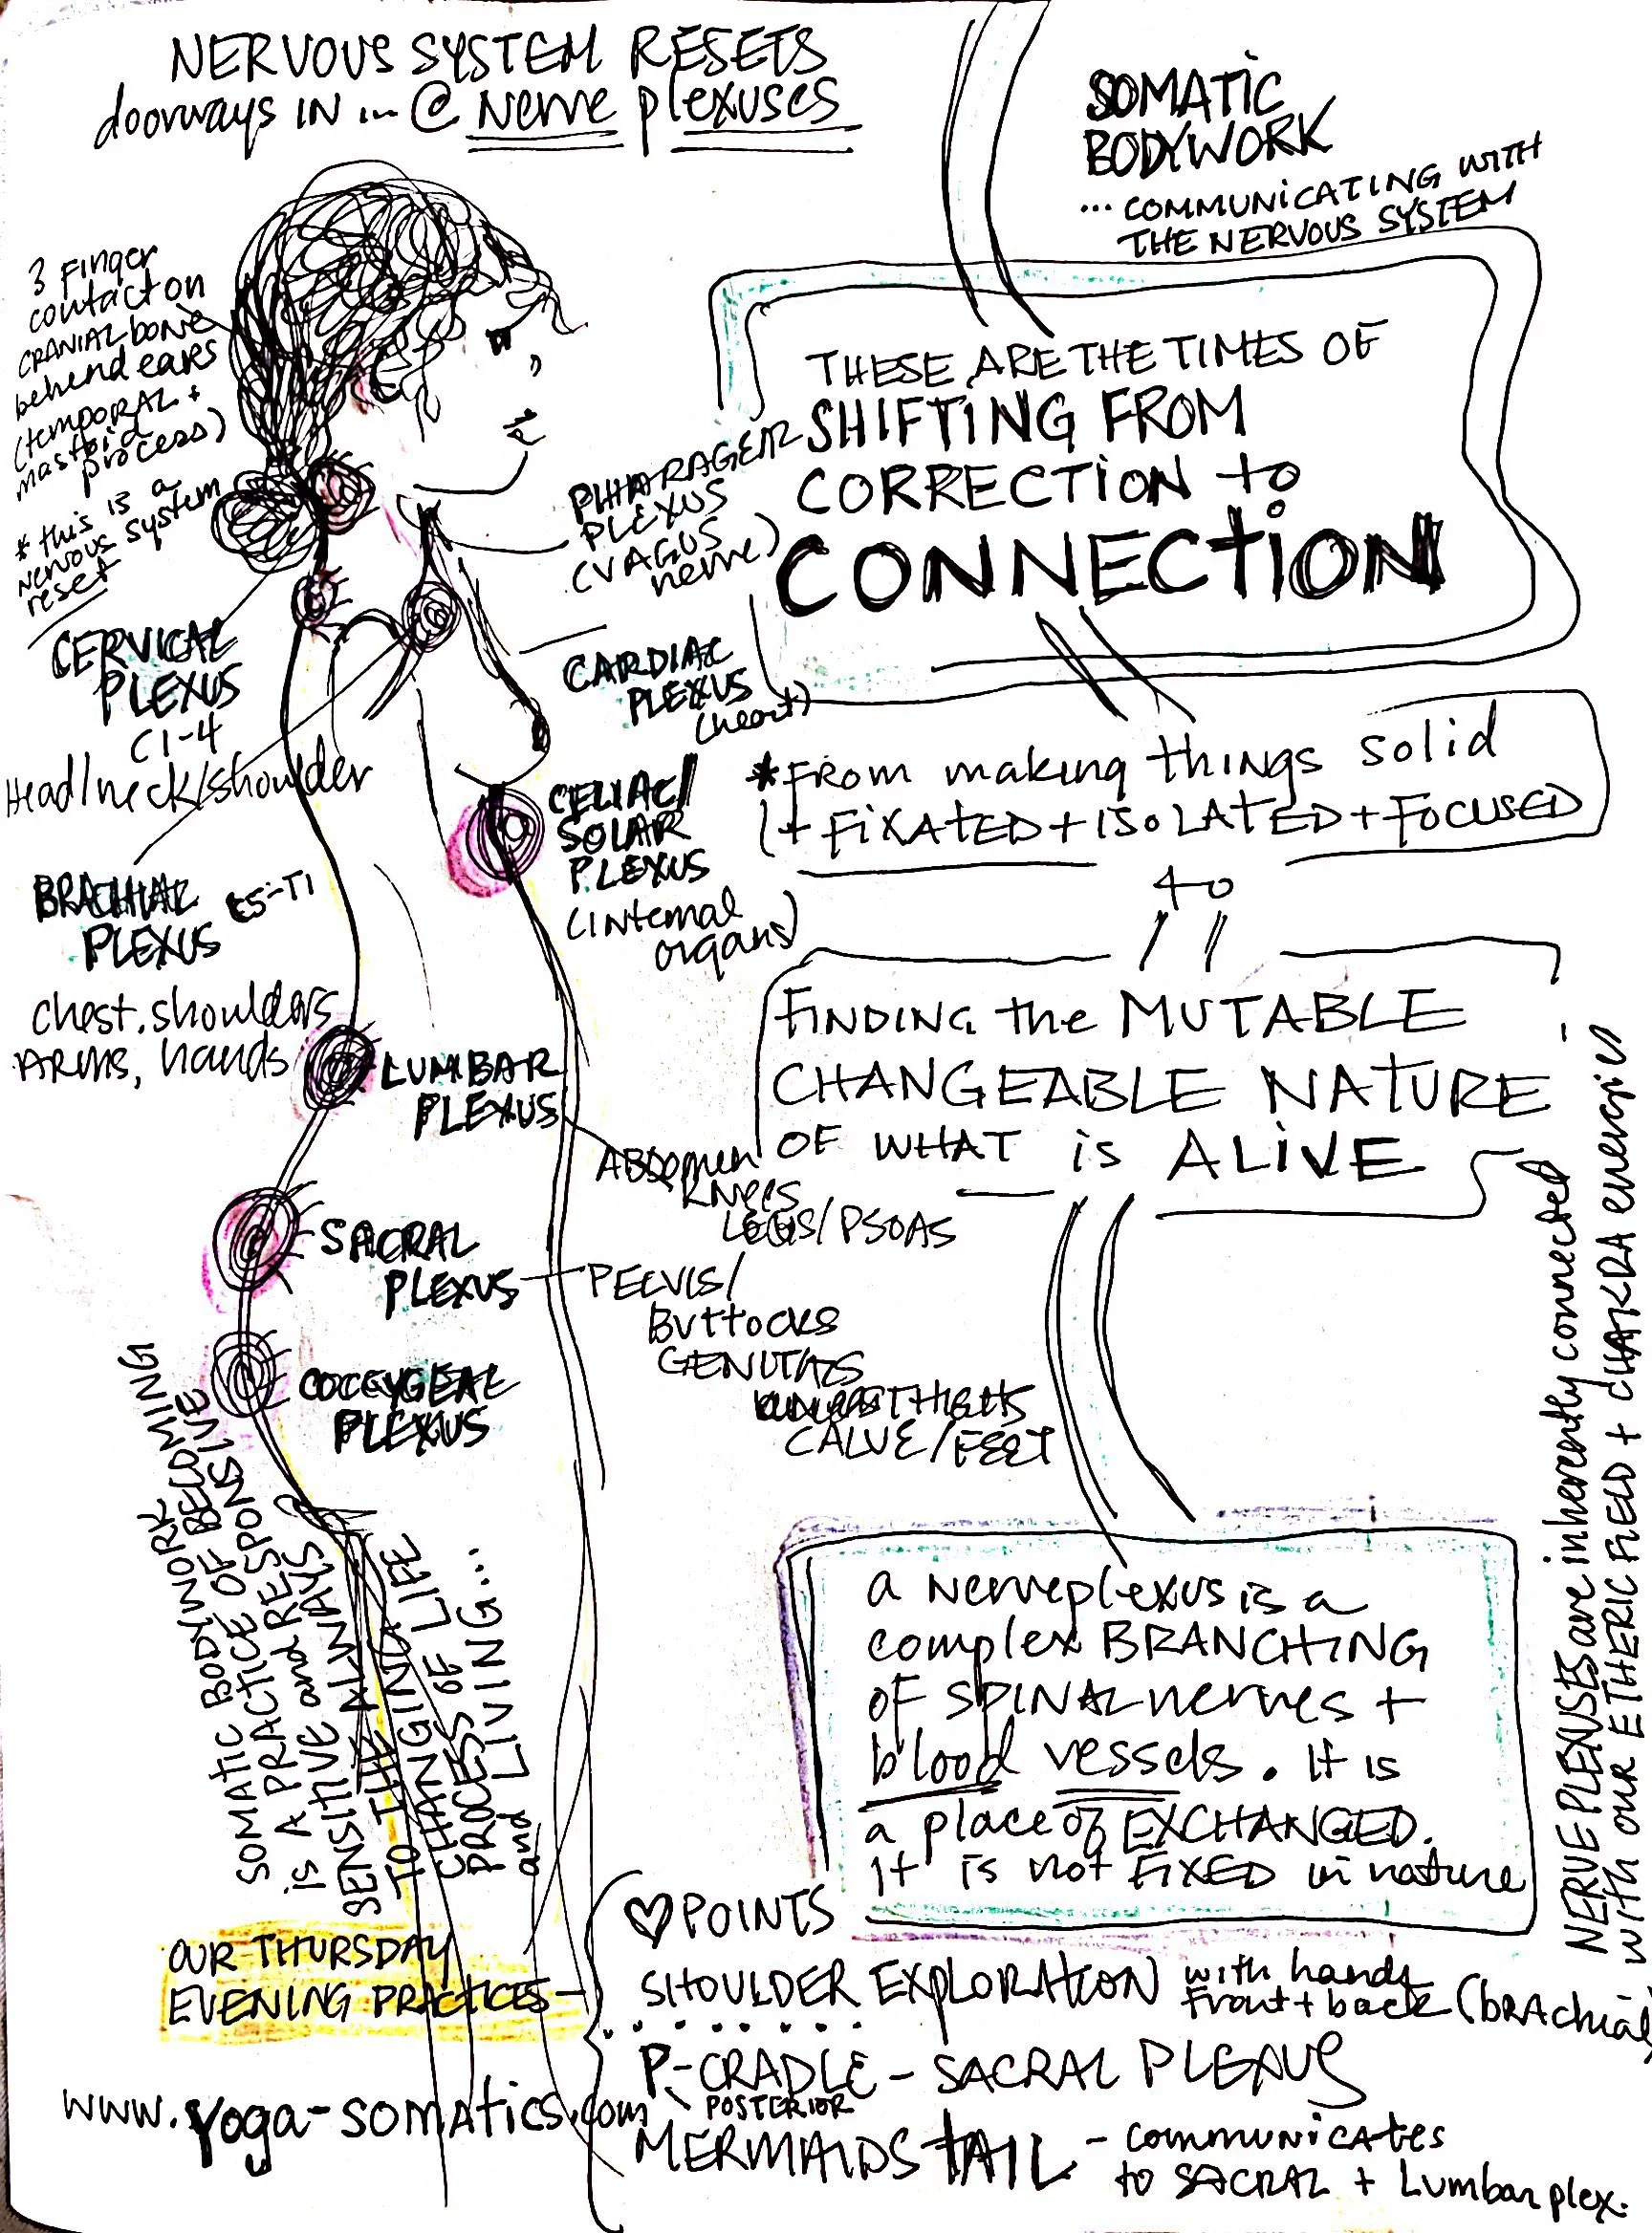 NERVOUS SYSTEM RESETS
doorways IN ... @ Nerve plexuses
SOMATIC
BODYWORK
... COMMUNICATING WITH
THE NERVOUS SYSTEM
3 Finger
contact on
CRANIAL bone
behend ears
(temporal +
mastoid
process)
* this is a
nervous system
reset
CERVICAL
PLEXUS
C1-4
Head/neck/shoulder
BRACHIAL
PLEXUS C5-T1
chest, shoulders
ARMS, hands
PLEXUS
(VAGUS
nerve)
CARDIAC
PLEXUS
(heart)
CELIAC/
SOLAR
PLEXUS
(internal
organs)
LUMBAR
PLEXUS
ABDOMEN
KNEES
LEGS/PSOAS
SACRAL
PLEXUS
PELVIS/
BUTTOCKS
GENITALS
THIGHS
CALVE/FEET
COCCYGEAL
PLEXUS
THESE ARE THE TIMES OF
SHIFTING FROM
CORRECTION to
CONNECTION
*FROM making things solid
(+ FIXATED + ISOLATED + FOCUSED
to
FINDING the MUTABLE
CHANGEABLE NATURE
OF WHAT is ALIVE
a nerve plexus is a
complex BRANCHING
OF SPINAL nerves +
blood vessels. It is
a place of EXCHANGED.
it is not FIXED in nature
NERVE PLEXUSES are inherently connected
with our ETHERIC FIELD + CHAKRA energies
SOMATIC BODYWORK
IS A PRACTICE OF BECOMING
SENSITIVE and RESPONSIVE
TO THE ALWAYS
CHANGING LIFE
PROCESS OF LIFE
and LIVING...
OUR THURSDAY
EVENING PRACTICES
♡ POINTS
SHOULDER EXPLORATION with hands
front + back (brachial)
P-CRADLE - SACRAL PLEXUS
POSTERIOR
MERMAIDS TAIL - communicates
to SACRAL + Lumbar plex.
www.yoga-somatics.com